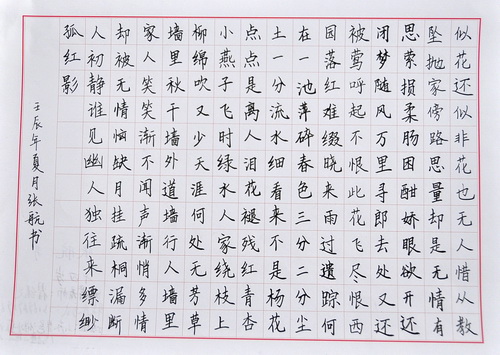 似花还似非花也无人惜从教
坠抛家傍路思量却是无情有
思萦损柔肠困酣娇眼欲开还
闭梦随风万里寻郎去处又还
被莺呼起不恨此花飞尽恨西
园落红难缀晓来雨过遗踪何
在一池萍碎春色三分二分尘
土一分流水细看来不是杨花
点点是离人泪花褪残红青杏
小燕子飞时绿水人家绕枝上
柳绵吹又少天涯何处无芳草
墙里秋千墙外道墙行人墙里
家人笑笑渐不闻声渐悄多情
却被无情恼缺月挂疏桐漏断
人初静谁见幽人独往来缥缈
孤红影
壬辰年夏月张航书